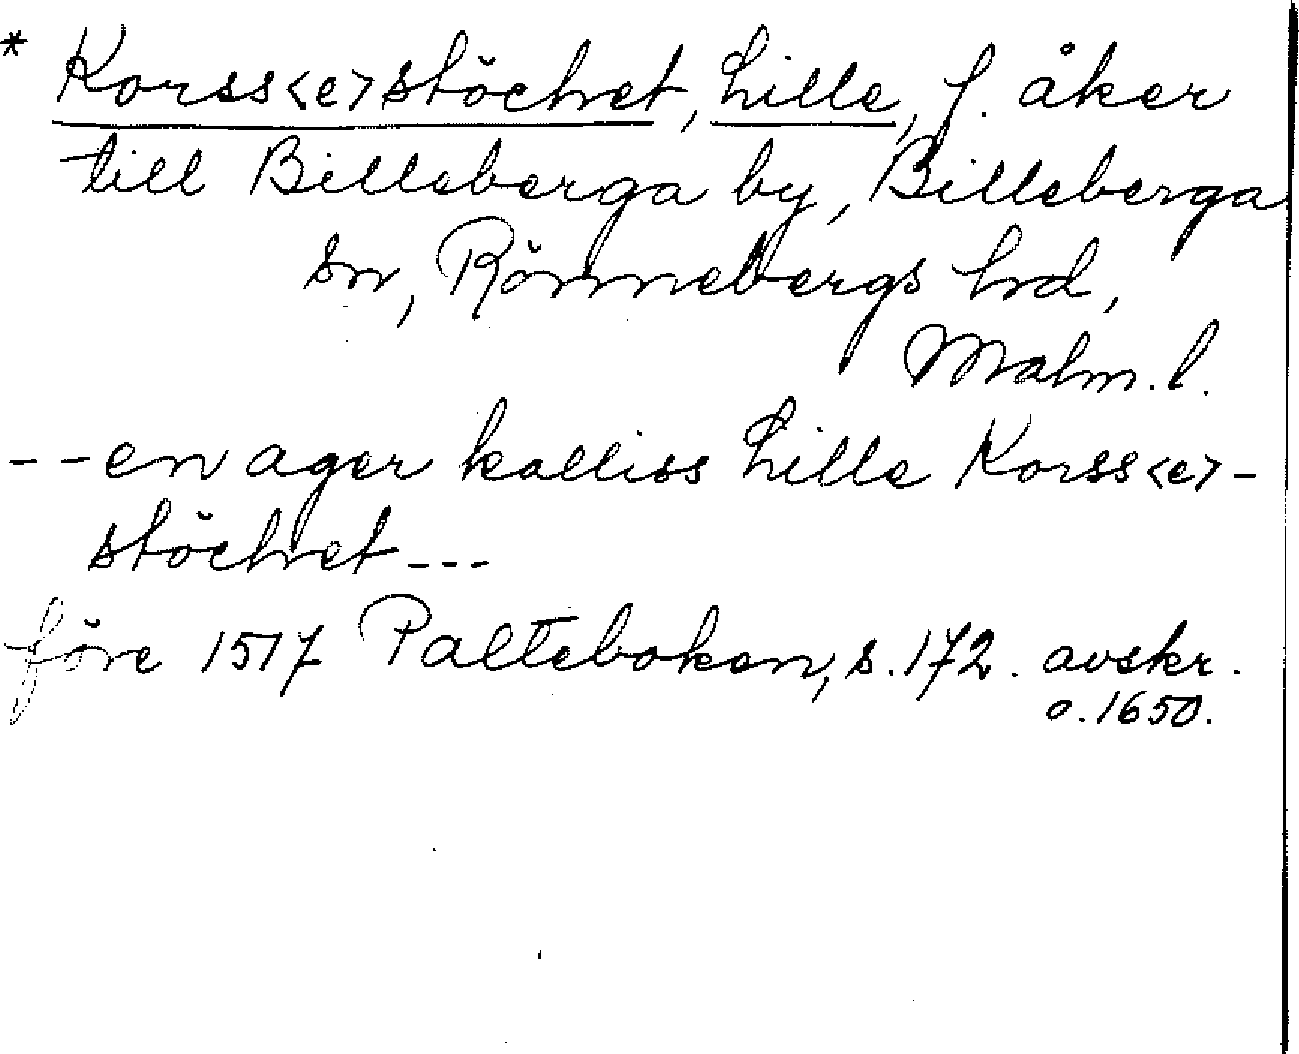 * Korss<e>stöchet, Lille, f. åker
till Billeberga by, Billeberga
sn, Rönnebergs hd,
Malm. l.
-- en ager kalliss Lille Korss<e>-
stöchet ---
före 1517 Palteboken, s. 172. avskr.
o. 1650.